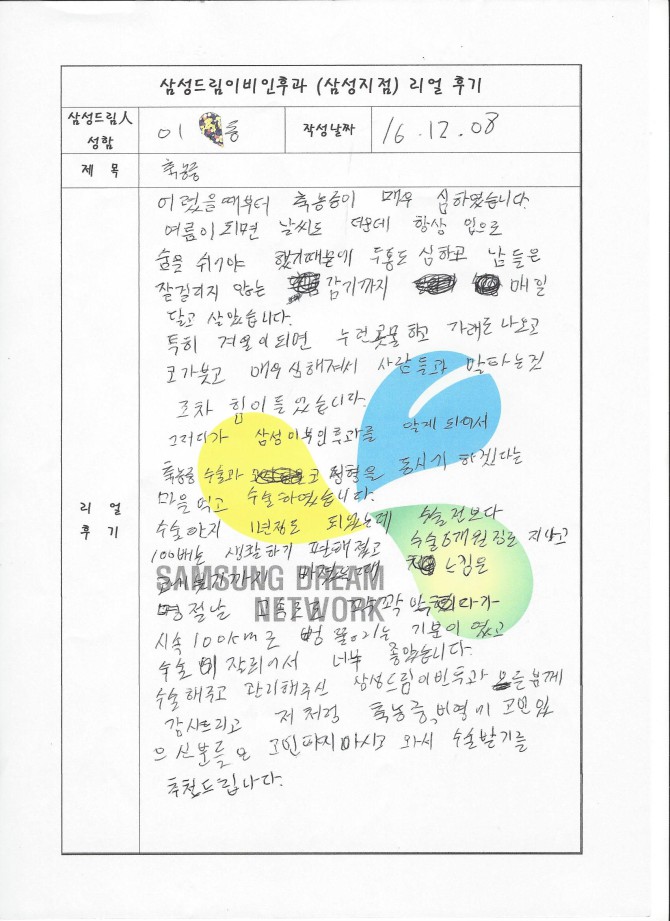 삼성드림이비인후과 (삼성지점) 리얼 후기
삼성드림人
성함
이 용
작성날짜
16.12.08
제 목
축농증
리 얼
후 기
어렸을때부터 축농증이 매우 심하였습니다.
여름이되면 날씨도 더운데 항상 입으로
숨을 쉬기야 했기때문에 두통도 심하고 남들은
잘걸리지 않는 감기까지 매일
달고 살았습니다.
특히 겨울이되면 누런콧물하고 가래도 나오고
코가붓고 매우심해져서 사람들과 말하는것
조차 힘이들었습니다.
그러다가 삼성이비인후과를 알게 되어서
축농증 수술과 코 성형을 동시기 하겠다는
마음먹고 수술하였습니다.
수술한지 1년정도 되었는데 수술전보다
100배는 생활하기 편해졌고 수술6개월정도 지나고
빠졌을때 느낌은
명절날 고속도로 꽉꽉 막혔다가
시속 100km로 뻥 뚫리는 기분이였고
수술이 잘되어서 너무 좋았습니다.
수술해주고 관리해주신 삼성드림이비인후과 모든분께
감사드리고 저처럼 축농증,비염에 고민있
으신분들은 고민하지마시고 와서 수술받기를
추천드립니다.
SAMSUNG DREAM
NETWORK